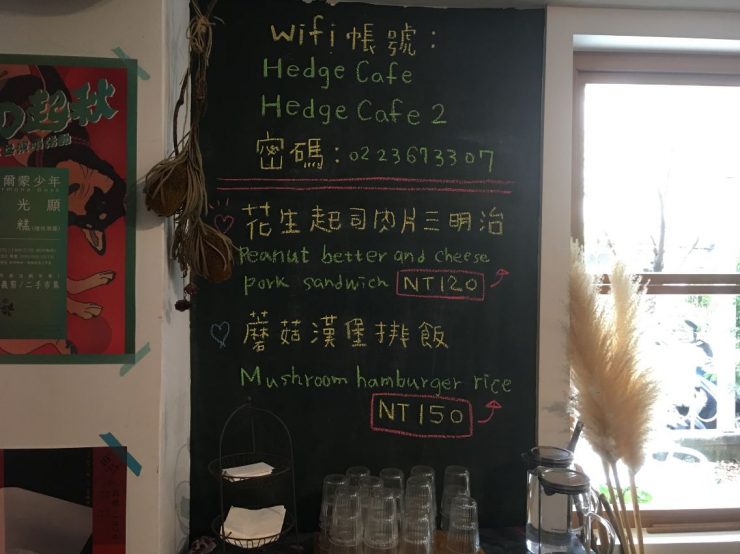 の起秋
爾蒙少年
光顯
糕
wifi 帳號:
Hedge Cafe
Hedge Cafe 2
密碼:0223673307
花生起司肉片三明治
Peanut better and cheese
pork sandwich NT120
蘑菇漢堡排飯
Mushroom hamburger rice
NT150